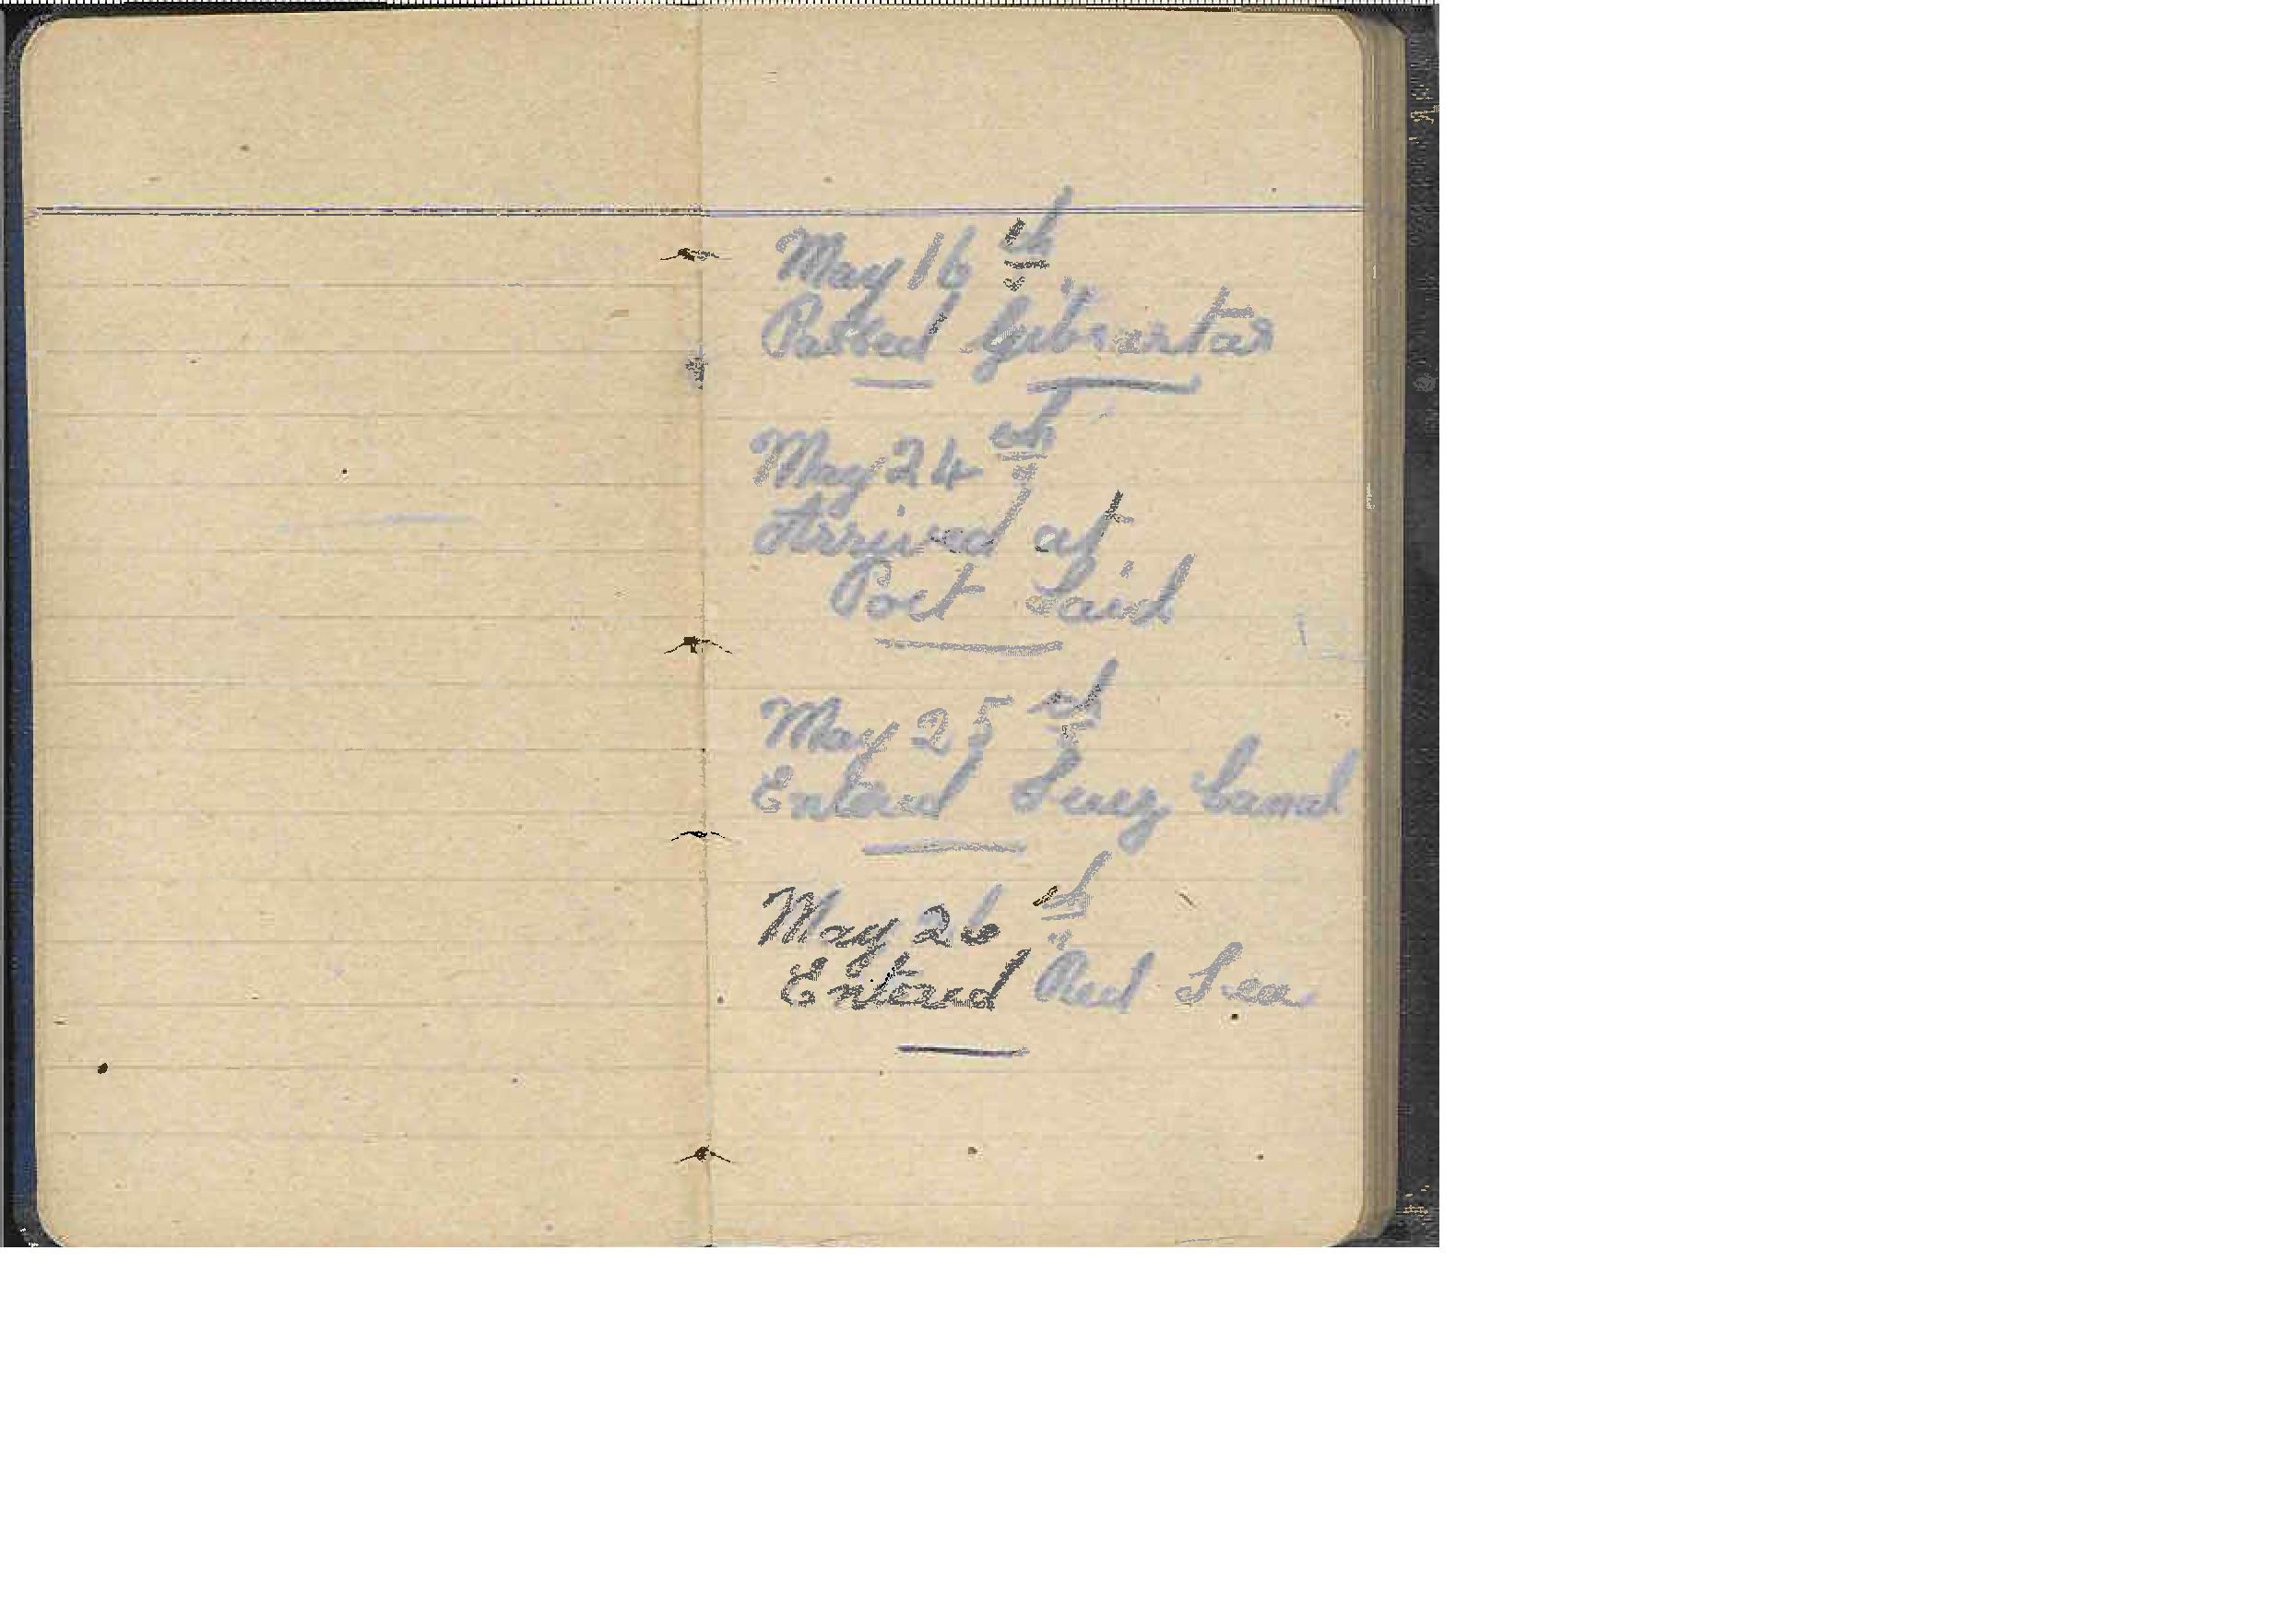 May 16th
Passed Gibraltar
May 24th
Arrived at
Port Said
May 25th
Entered Suez Canal
May 26th
Entered Red Sea